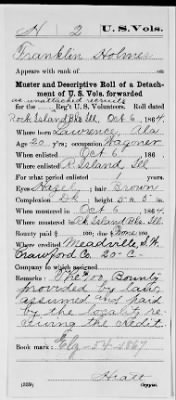 H 2 U.S. Vols.
Franklin Holmes
Appears with rank of
Muster and Descriptive Roll of a Detach-
ment of U. S. Vols. forwarded
as unattached recruits
for the Reg't U. S. Volunteers. Roll dated
Rock Island Bks Ill, Oct 6, 1864.
Where born Lawrence, Ala.
Age 20 y'rs; occupation
When enlisted Oct 6, 1864.
Where enlisted R Island Ill
For what period enlisted 1 years.
Eyes Hazel; hair Brown
Complexion Dk; height 5 ft. 5 in.
When mustered in Oct 6, 1864.
Where mustered in Rk Island Bks Ill.
Bounty paid $ 100; due $ None 100
Where credited Meadville, S.W.
Crawford Co. 20-C
Company to which assigned
Remarks: The Bounty
provided by law
assumed and paid
by the locality re-
ceiving the credit.
Book mark:
Hiatt
(339) Copyist.